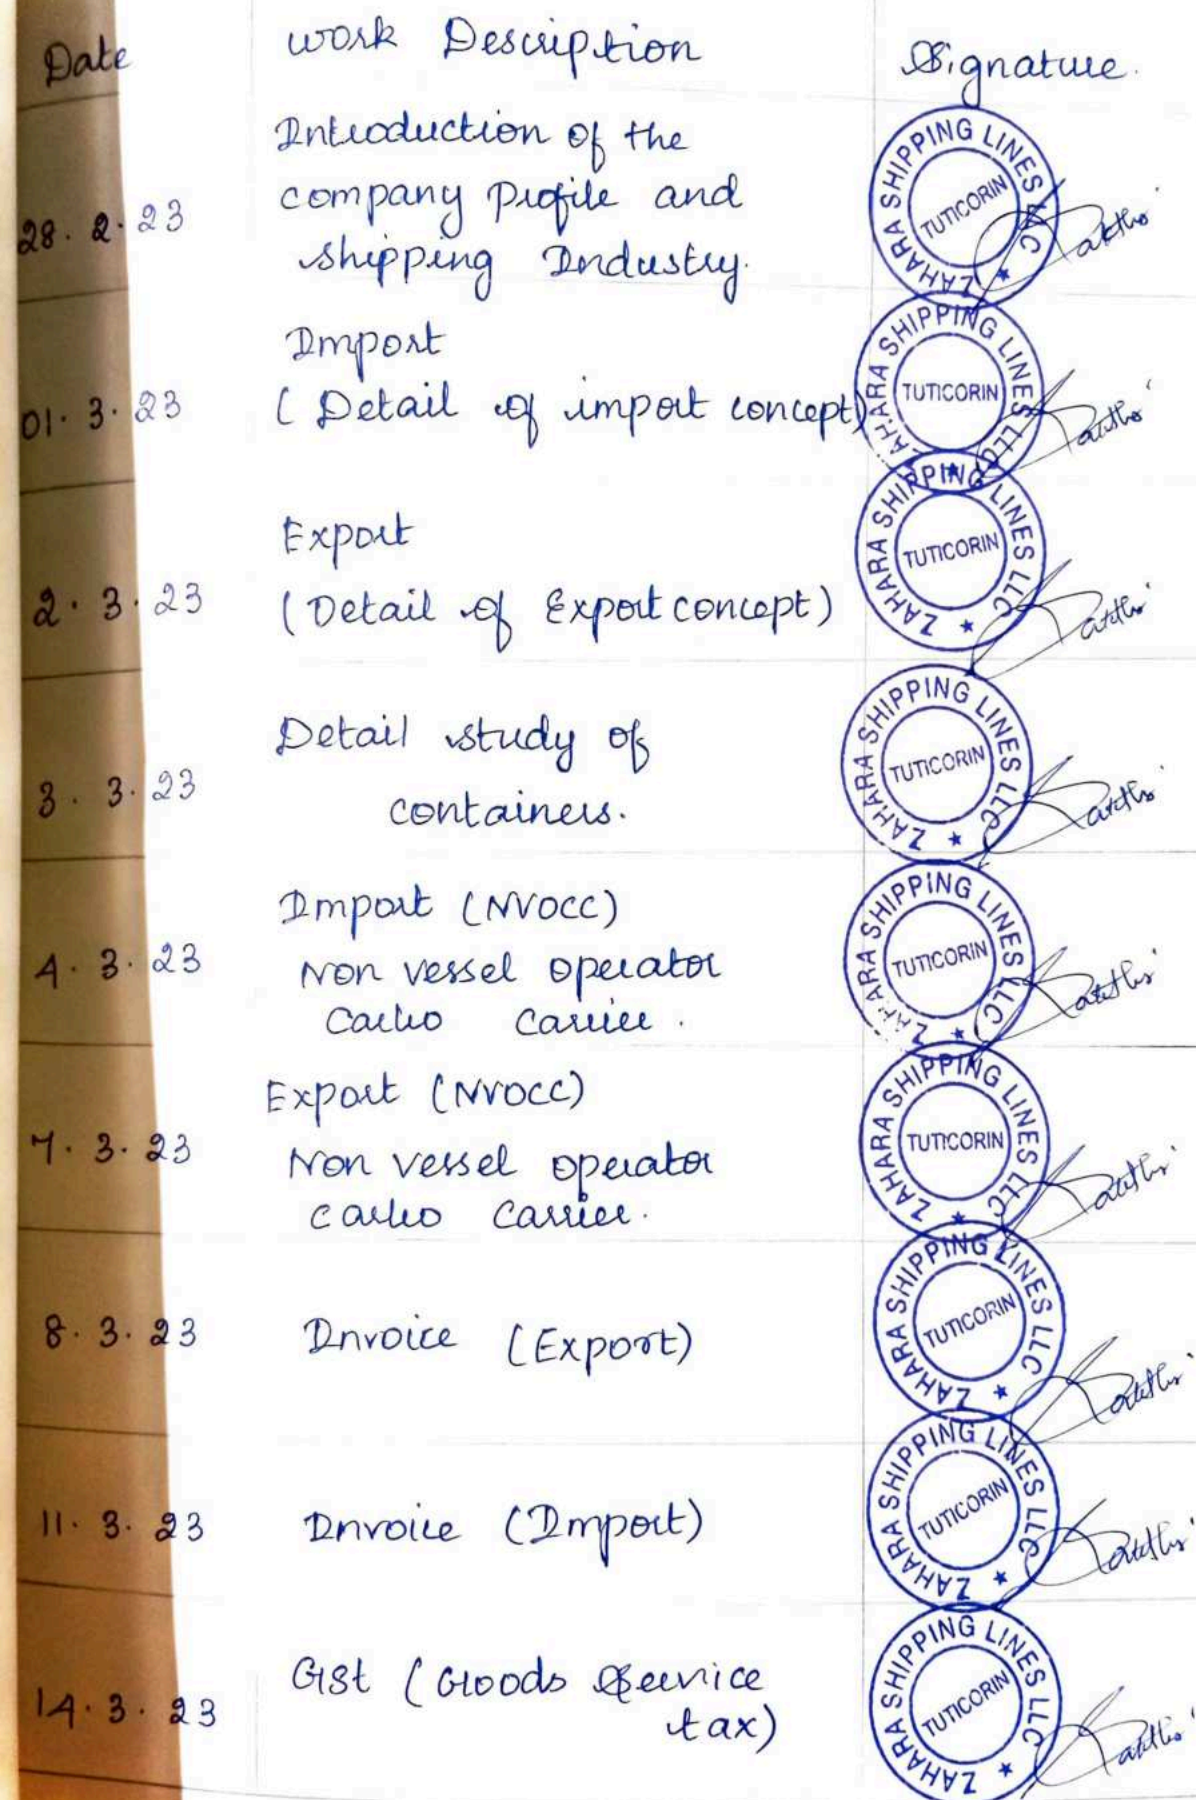 Date
Work Description
Signature.
28. 2. 23
Introduction of the
company Profile and
shipping Industry.
ZAHARA SHIPPING LINES LLC ★
TUTICORIN
01. 3. 23
Import
( Detail of import concept)
ZAHARA SHIPPING LINES LLC ★
TUTICORIN
2. 3. 23
Export
(Detail of Export concept)
ZAHARA SHIPPING LINES LLC ★
TUTICORIN
3. 3. 23
Detail study of
containers.
ZAHARA SHIPPING LINES LLC ★
TUTICORIN
4. 3. 23
Import (NVOCC)
Non vessel operator
Carrier.
ZAHARA SHIPPING LINES LLC ★
TUTICORIN
7. 3. 23
Export (NVOCC)
Non vessel operator
Carrier.
ZAHARA SHIPPING LINES LLC ★
TUTICORIN
8. 3. 23
Invoice (Export)
ZAHARA SHIPPING LINES LLC ★
TUTICORIN
11. 3. 23
Invoice (Import)
ZAHARA SHIPPING LINES LLC ★
TUTICORIN
14. 3. 23
Gst (Goods Service
tax)
ZAHARA SHIPPING LINES LLC ★
TUTICORIN